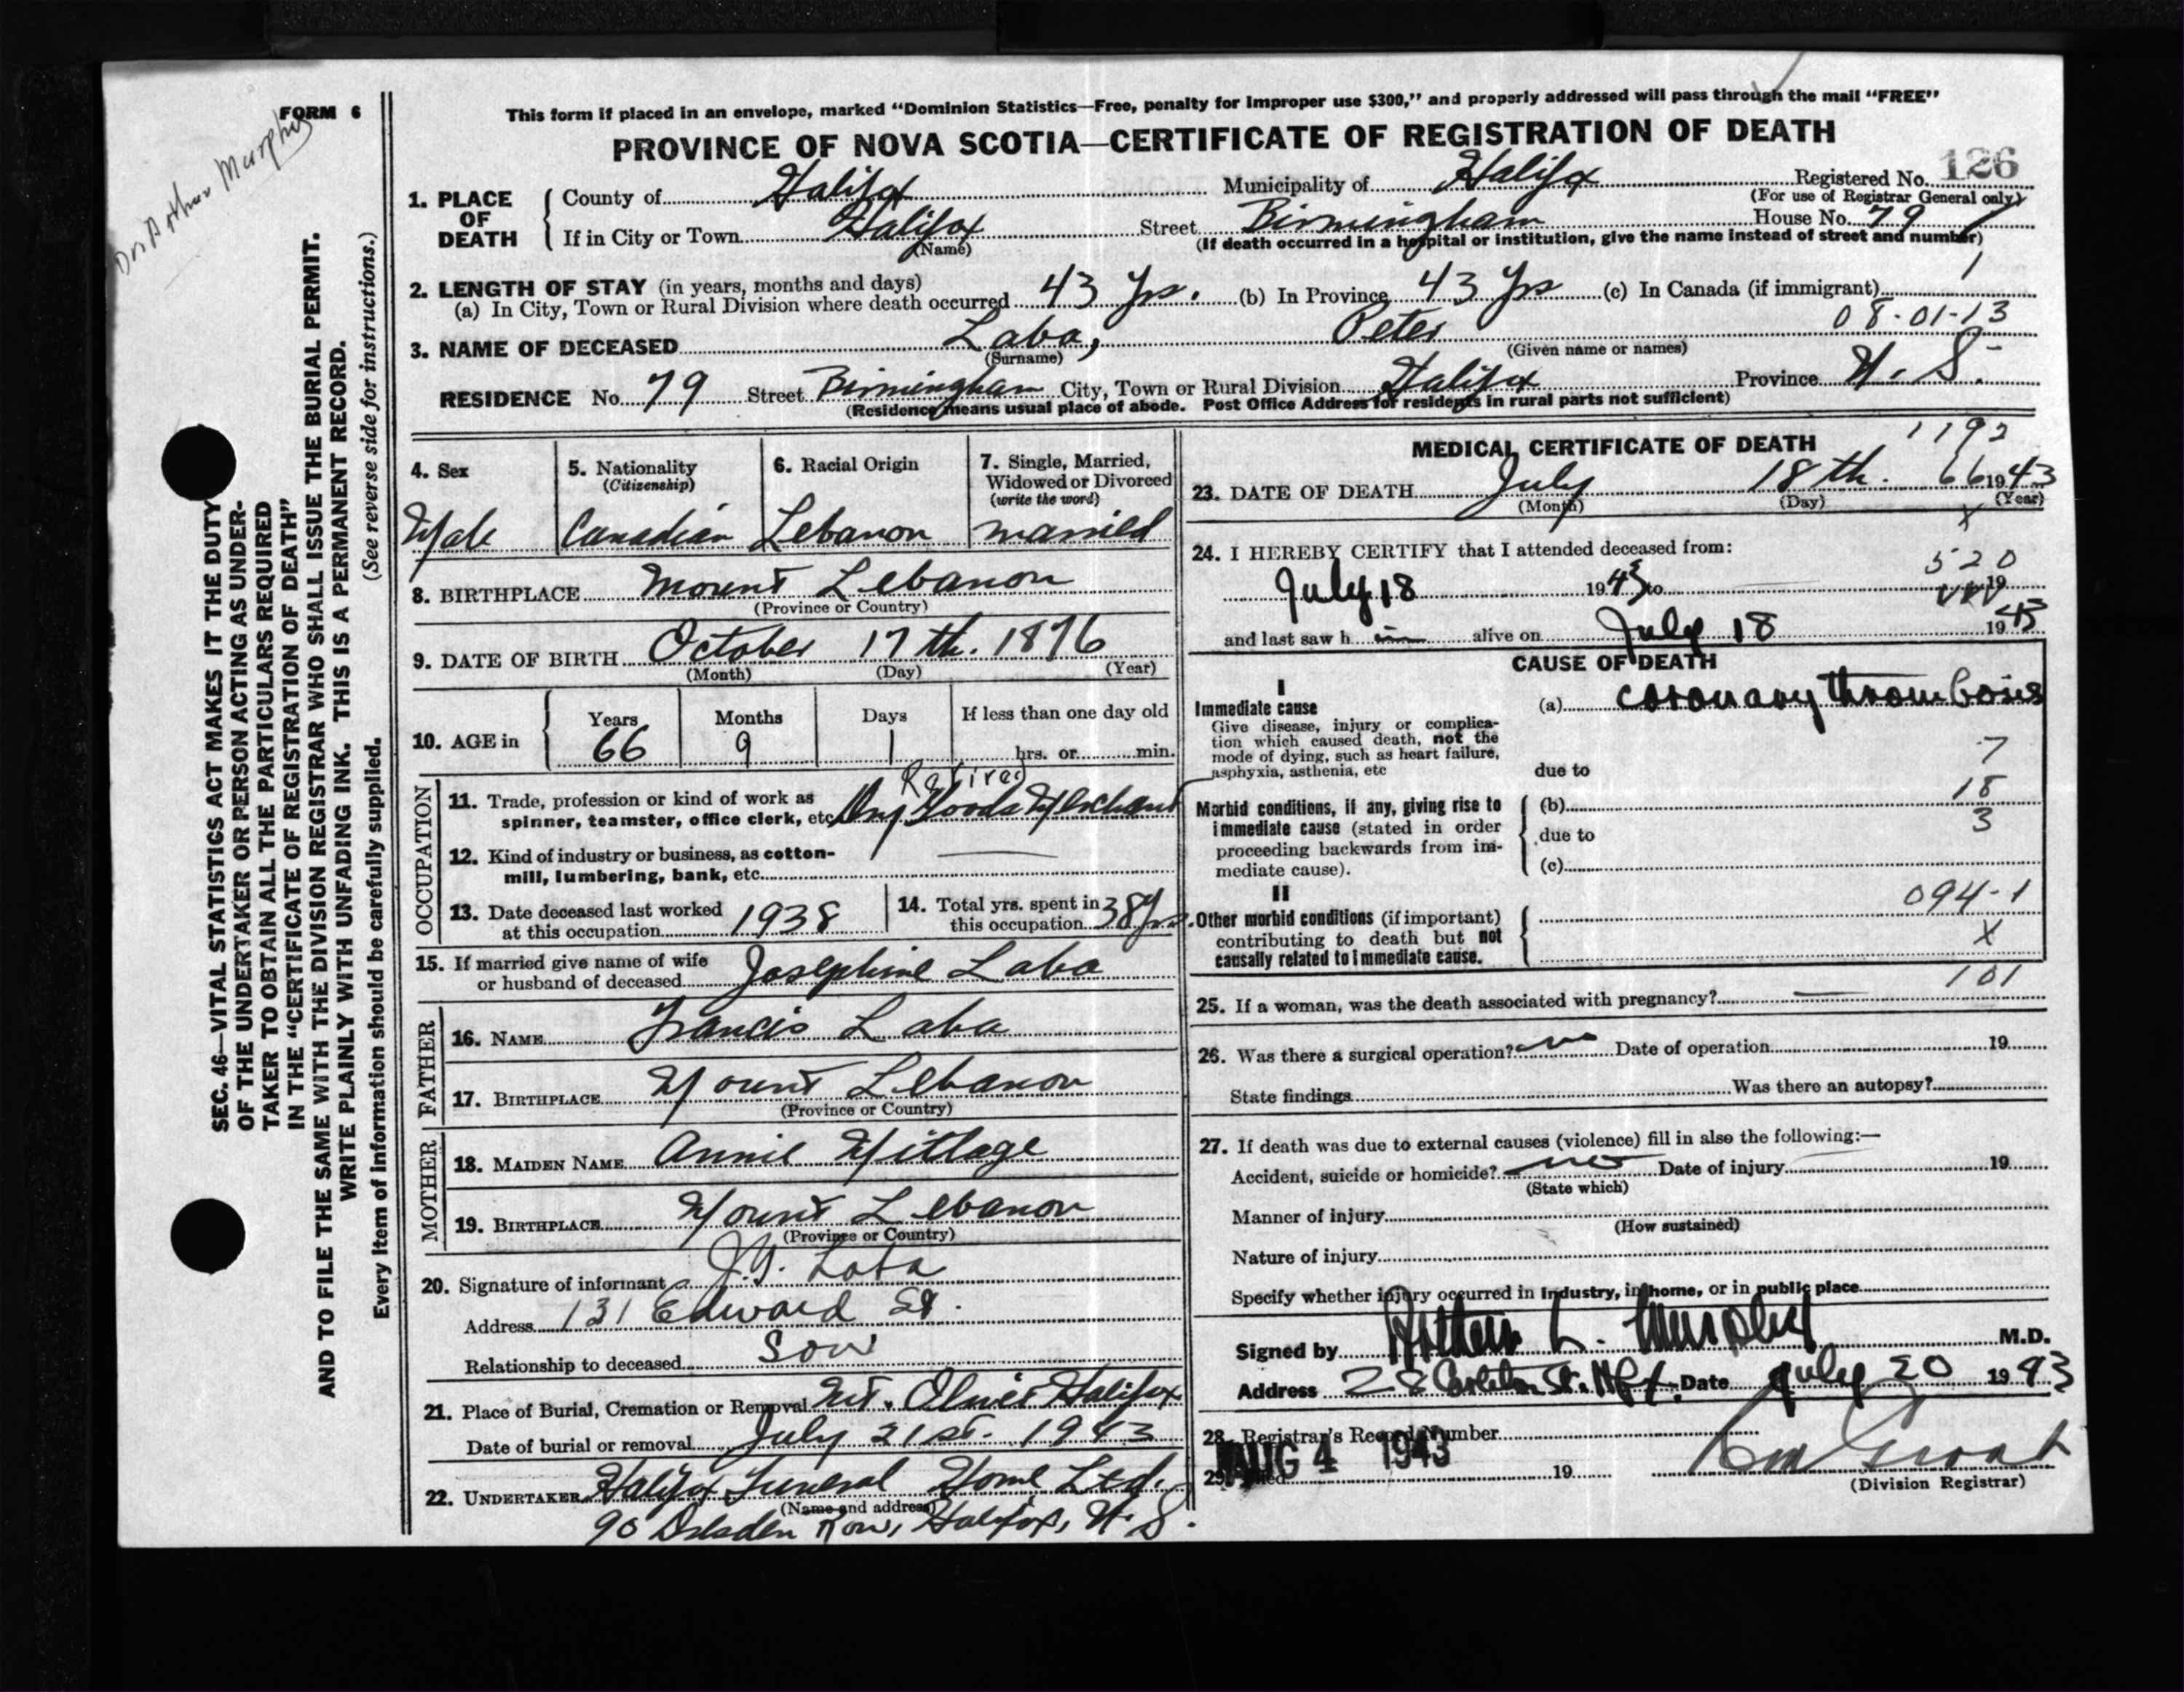 FORM 6
Dr. Arthur Murphy
SEC. 46—VITAL STATISTICS ACT MAKES IT THE DUTY
OF THE UNDERTAKER OR PERSON ACTING AS UNDER-
TAKER TO OBTAIN ALL THE PARTICULARS REQUIRED
IN THE "CERTIFICATE OF REGISTRATION OF DEATH"
AND TO FILE THE SAME WITH THE DIVISION REGISTRAR WHO SHALL ISSUE THE BURIAL PERMIT.
WRITE PLAINLY WITH UNFADING INK. THIS IS A PERMANENT RECORD.
Every item of information should be carefully supplied. (See reverse side for instructions.)
This form if placed in an envelope, marked "Dominion Statistics—Free, penalty for improper use $300," and properly addressed will pass through the mail "FREE"
PROVINCE OF NOVA SCOTIA—CERTIFICATE OF REGISTRATION OF DEATH
1. PLACE OF DEATH
County of Halifax Municipality of Halifax Registered No. 126
(For use of Registrar General only)
If in City or Town Halifax Street Birmingham House No. 79
(Name) (If death occurred in a hospital or institution, give the name instead of street and number)
2. LENGTH OF STAY (in years, months and days)
(a) In City, Town or Rural Division where death occurred 43 Yrs. (b) In Province 43 Yrs (c) In Canada (if immigrant)
08-01-13
3. NAME OF DECEASED Laba, Peter
(Surname) (Given name or names)
RESIDENCE No. 79 Street Birmingham City, Town or Rural Division Halifax Province N. S.
(Residence means usual place of abode. Post Office Address for residents in rural parts not sufficient)
4. Sex
Male
5. Nationality
(Citizenship)
Canadian
6. Racial Origin
Lebanon
7. Single, Married,
Widowed or Divorced
(write the word)
married
8. BIRTHPLACE Mount Lebanon
(Province or Country)
9. DATE OF BIRTH October 17th. 1876
(Month) (Day) (Year)
10. AGE in
Years Months Days If less than one day old
66 9 1 hrs. or min.
OCCUPATION
Retired
11. Trade, profession or kind of work as
spinner, teamster, office clerk, etc. Dry Goods Merchant
12. Kind of industry or business, as cotton-
mill, lumbering, bank, etc.
13. Date deceased last worked
at this occupation 1938
14. Total yrs. spent in
this occupation 38 Yrs.
15. If married give name of wife
or husband of deceased Josephine Laba
FATHER
16. NAME Francis Laba
17. BIRTHPLACE Mount Lebanon
(Province or Country)
MOTHER
18. MAIDEN NAME Annie Mitlage
19. BIRTHPLACE Mount Lebanon
(Province or Country)
20. Signature of informant J. Laba
Address 131 Edward St.
Relationship to deceased Son
21. Place of Burial, Cremation or Removal Mt. Olivet Halifax
Date of burial or removal July 21st. 1943
22. UNDERTAKER Halifax Funeral Home Ltd.
(Name and address)
90 Dresden Row, Halifax, N. S.
MEDICAL CERTIFICATE OF DEATH
1192
23. DATE OF DEATH July 18th. 66 1943
(Month) (Day) (Year)
X
24. I HEREBY CERTIFY that I attended deceased from:
520
July 18 1943 to 19
and last saw h im alive on July 18 1943
CAUSE OF DEATH
I
Immediate cause
Give disease, injury or complica-
tion which caused death, not the
mode of dying, such as heart failure,
asphyxia, asthenia, etc
(a) coronary thrombosis
7
due to
Morbid conditions, if any, giving rise to
immediate cause (stated in order
proceeding backwards from im-
mediate cause).
(b) 18
due to 3
(c)
II
Other morbid conditions (if important)
contributing to death but not
causally related to immediate cause.
094-1
X
101
25. If a woman, was the death associated with pregnancy?
26. Was there a surgical operation? no Date of operation 19
State findings Was there an autopsy?
27. If death was due to external causes (violence) fill in also the following:—
Accident, suicide or homicide? no Date of injury 19
(State which)
Manner of injury
(How sustained)
Nature of injury
Specify whether injury occurred in industry, in home, or in public place
Signed by Arthur L. Murphy M.D.
Address 28 Carleton St. Hfx. Date July 20 1943
28. Registrar's Record Number
29. Filed AUG 4 1943 19
(Division Registrar)